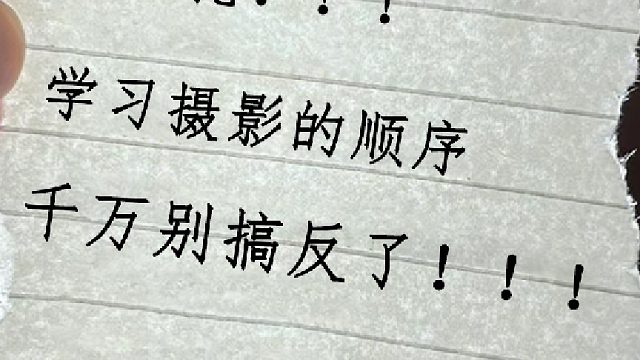 ！！！
学习摄影的顺序
千万别搞反了！！！